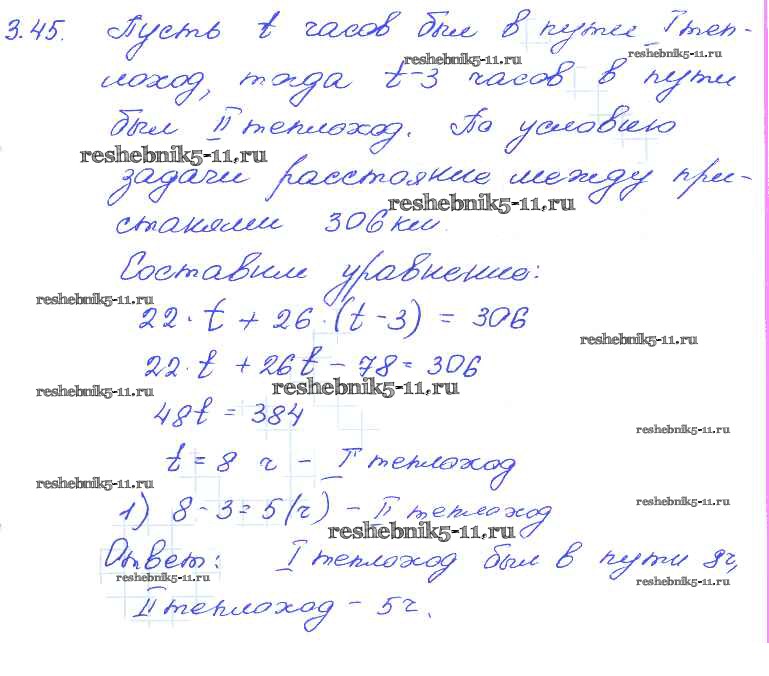 3.45. Пусть t часов был в пути I теп-
reshebnik5-11.ru
reshebnik5-11.ru
лоход, тогда t-3 часов в пути
был II теплоход. По условию
reshebnik5-11.ru
задачи расстояние между при-
reshebnik5-11.ru
станями 306 км.
Составим уравнение:
reshebnik5-11.ru
22·t + 26·(t-3) = 306
reshebnik5-11.ru
22·t + 26t - 78 = 306
reshebnik5-11.ru
reshebnik5-11.ru
48t = 384
reshebnik5-11.ru
t = 8 ч - I теплоход
reshebnik5-11.ru
1) 8 - 3 = 5 (ч) - II теплоход
reshebnik5-11.ru
reshebnik5-11.ru
Ответ: I теплоход был в пути 8ч,
reshebnik5-11.ru
reshebnik5-11.ru
II теплоход - 5ч.